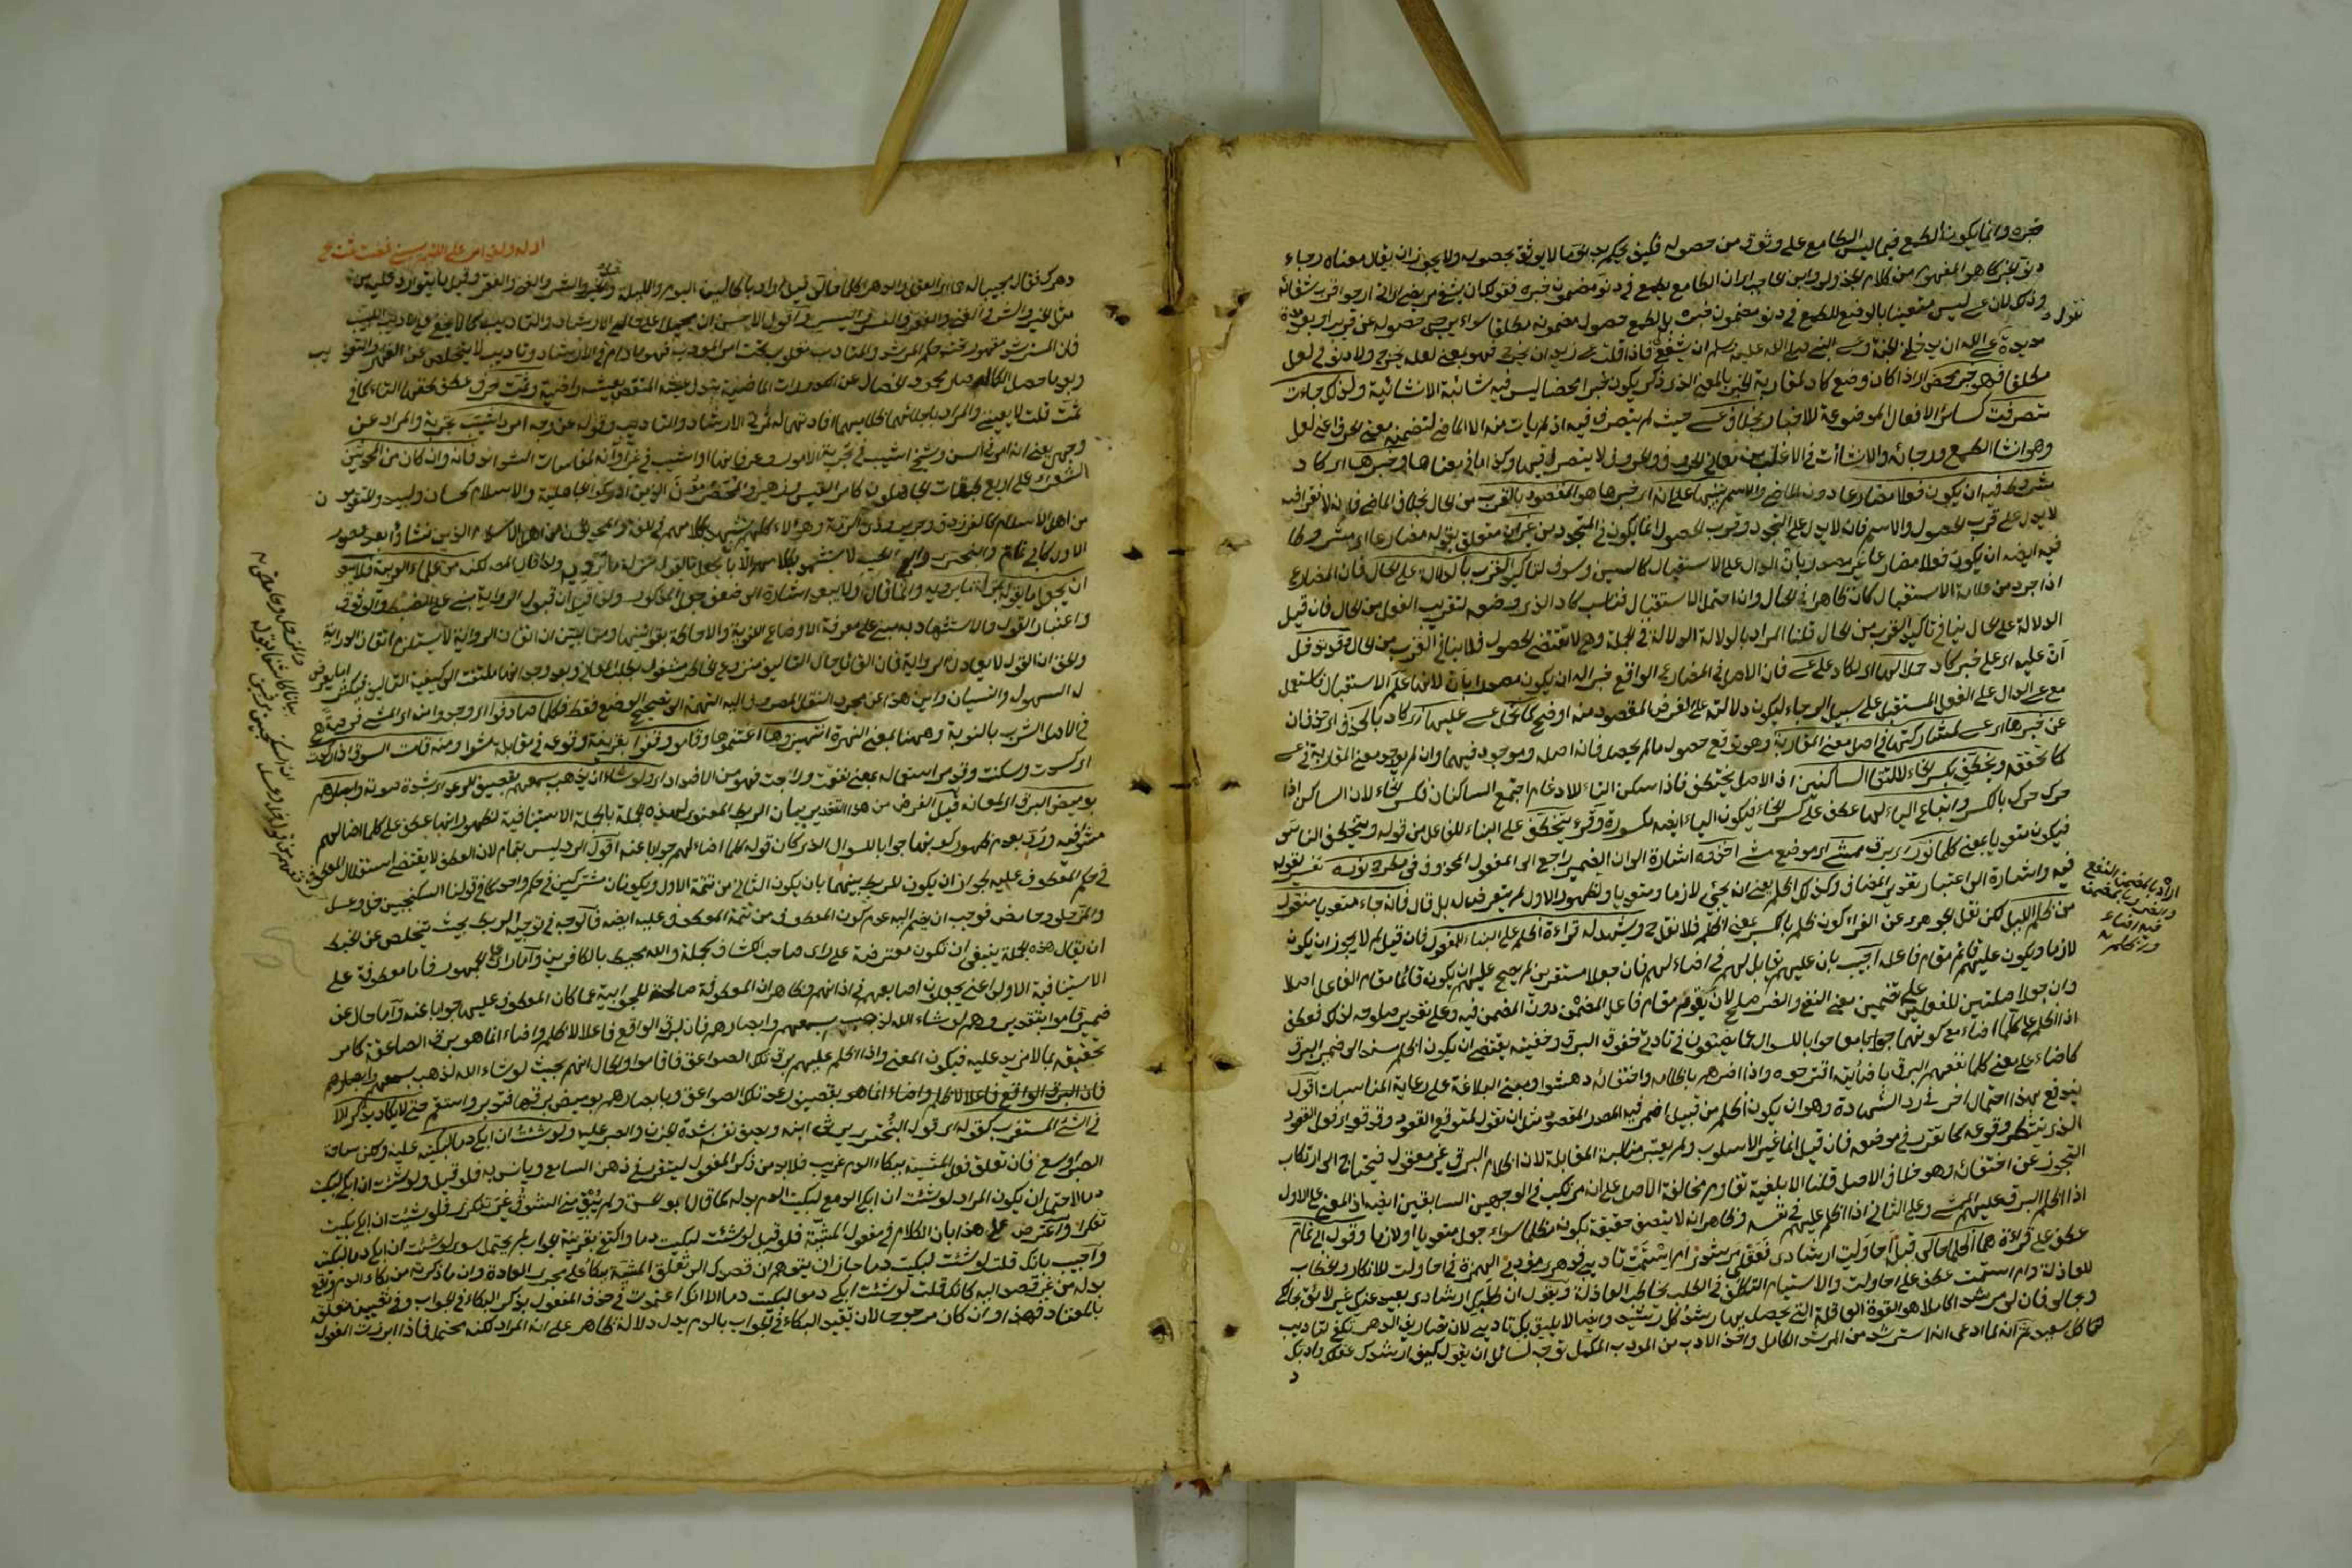 خبره وانما يكون الطمع فيما ليس الطامع على وثوق من حصوله فكيف يحكم بدنو ما لا يوثق بحصوله ولا يجوز ان يقال معناه رجاء
دنو الخبر كما هو المفهوم من كلام الجزولي وابن الحاجب اي ان الطامع يطمع في دنو مضمون خبره فقولك عسى الله ان يشفي مريضي اي اني ارجو قرب شفائه
وذلك لان عسى ليس متعينا بالوضع للطمع في دنو مضمون خبره بل لطمع حصول مضمونه مطلقا سواء يرجى حصوله عن قريب او بعد مدة
مديدة تقول عسى الله ان يدخلني الجنة وعسى النبي صلى الله عليه وسلم ان يشفع لي فاذا قلت عسى زيد ان يخرج فهو بمعنى لعله يخرج ولا دنو في لعل
مطلقا فهو خبر محض اي اذا كان وضع كاد لمقاربة الخبر بالمعنى الذي ذكر يكون خبرا محضا ليس فيه شائبة الانشائية ولذلك جاءت
متصرفة كسائر الافعال الموضوعة للاخبار بخلاف عسى حيث لم يتصرف فيه اذ لم يأت منه الا الماضي لتضمنه معنى الحرف اعني لعل
وهو انشا الطمع والرجاء والانشاآت في الاغلب من معاني الحروف والحروف لا يتصرف فيها وكذا ما في معناها وخبرها اي كاد
مشروط فيه ان يكون فعلا مضارعا دون الماضي والاسم تنبيها على انه اي خبرها هو المقصود بالقرب من الحال بخلاف الماضي فانه لانقراضه
لا يدل على قرب الحصول والاسم فانه لا يدل على التجدد وقرب الحصول انما يكون في المتجدد من غير ان متعلق بقوله مضارعا اي مشروط
فيه ايضا ان يكون فعلا مضارعا غير مصدر بان الدال على الاستقبال كالسين وسوف لتاكيد القرب بالدلالة على الحال فان المضارع
اذا جرد من علامة الاستقبال كان ظاهرا في الحال وان احتمل الاستقبال فناسب كاد الذي وضعه لتقريب الفعل من الحال فان قيل
الدلالة على الحال ينافي تاكيد القرب من الحال قلنا المراد بالدلالة الدلالة في الجملة وهي لا تقتضي الحصول فلا ينافي القرب من الحال وقد تدخل
ان عليه اي على خبر كاد حملا لها اي لكاد على عسى فان الاصل في المضارع الواقع خبرا له ان يكون مصدرا بان لانها علم الاستقبال فاستعمل
مع عسى الدال على الفعل المستقبل على سبيل الرجاء ليكون دلالته على الغرض المقصود منه اوضح كما تحمل عسى عليها اي كاد بالحذف اي حذف ان
عن خبرها اي عسى لمشاركتهما في اصل معنى المقاربة وهو توقع حصول ما لم يحصل فانه اصل وموجود فيهما وان لم يوجد معنى المقاربة في عسى
كما تحققته ويخطف بكسر الخاء لالتقاء الساكنين اذ الاصل يختطف فاذا سكن التاء للادغام اجتمع الساكنان فكسر الخاء لان الساكن اذا
حرك حرك بالكسر واتباع الياء لها عطف على كسر الخاء فيكون الياء ايضا مكسورة وقرئ يتخطف على البناء للفاعل من قوله ويتخطف الناس
فيكون متعديا بمعنى كلما نور اي برق ممشى اي موضع مشي اخذوه اشارة الى ان الضمير راجع الى المفعول المحذوف في مطرح نوره تفسير لقوله
فيه واشارة الى اعتبار تقدير المضاف وكذلك اظلم يعني انه يجيء لازما ومتعديا ولظهور الاول لم يتعرض له بل قال فانه جاء متعديا منقولا
من ظلم الليل لكن نقل الجوهري عن الفراء كون ظلم بالكسر بمعنى اظلم فلا نقل ويشهد له قراءة اظلم على البناء للمفعول فان قيل لم لا يجوز ان يكون
لازما ويكون عليهم قائم مقام فاعله اجيب بان عليهم يقابل لهم في اضاء لهم فان جعلا مستقرين لم يصح عليهم ان يكون قائما مقام الفاعل اصلا
وان جعلا صلتين للفعلين على تضمين معنى النفع والضر صلح لان يقوم مقام فاعل المضمن دون المضمن فيه وعلى تقدير صلوحه لذلك فعطف
اذا اظلم على كلما اضاء مع كونهما جوابا معا جوابا للسؤال عما يصنعون في تارتي خفوق البرق وخفيته يقتضي ان يكون اظلم مسندا الى ضمير البرق
كاضاء على معنى كلما نفعهم البرق باضائته اقترحوه واذا اضرهم باظلامه واختفائه دهشوا ومبنى البلاغة على رعاية المناسبات اقول
يندفع بهذا احتمال اخر في رد الشهادة وهو ان يكون اظلم من قبيل اضمر فيه المصدر المقصود مثل ان تقول لمتوقع القعود وقد قعد اي فعل القعود
الذي ينتظر وقوعه كما تقرر في موضعه فان قيل انما غير الاسلوب ولم يعتبر مناسبة المقابلة لان اظلام البرق غير معقول فيحتاج الى ارتكاب
التجوز عن اختفائه وهو خلاف الاصل قلنا الابلغية تقاوم مخالفة الاصل على انه مرتكب في الوجهين السابقين ايضا اذ المعنى على الاول
اذا اظلم البرق عليهم الممشى وعلى الثاني اذا اظلم عليهم في نفسه وظاهر انه لا يتصف حقيقة بكونه مظلما سواء جعل متعديا او لازما وقول ابي تمام
عطف على قراءة هما اظلما حالي قبله احاولت ارشادي فعقلي مرشدي ام استمت تاديبي فدهري مؤدبي الهمزة في احاولت للانكار والخطاب
للعاذلة وام استمت عطف على احاولت والاستيام التكلف في الطلب يخاطب العاذلة ويقول ان طلبك ارشادي بعيد عنك غير لائق بحالك
وبحالي فان لي مرشدا كاملا هو القوة العاقلة التي يحصل بها رشد كل رشيد وايضا لا يليق بك تاديبي لان تصاريف الدهر تكفي لتاديب
كل سعيد ثم انه لما ادعى انه استرشد من المرشد الكامل واخذ الادب من المؤدب المكمل توجه لسائل ان يقول كيف ارشدك عقلك وادبك
اراد بالمضمن النفع
والضر وبالمضمن
فيه اضاء
واظلم
دهرك فقال مجيبا له هما اي العقل والدهر اظلما حالي قيل اراد بالحالين اليوم والليلة والخير والشر والغنى والفقر وقيل ما يتوارد عليه من
مثل الخير والشر والغنى والفقر والعسر واليسر واقول الاحسن ان يحملا على حالي الارشاد والتاديب كما لا يخفى على الاديب اللبيب
فان المسترشد مقهور تحت حكم المرشد والمتادب مغلوب تحت امر المؤدب فهو ما دام في الارشاد وتاديب لا يتخلص عن القهر والتعذيب
ثمت قلت لا يعنيني والمراد باجلائهما ظلاميهما افادتهما له ثمرتي الارشاد والتاديب وقوله عن وجه امرد اشيب تجربة والمراد عن
وجهي يعني انه امرد في السن وشيخ اشيب في تجربة الامور وعرفانها او اشيب في غير اوانه لمقاسات الشدائد فانه وان كان من المحدثين
الشعراء على اربع طبقات الجاهليون كامرئ القيس وزهير والمخضرمون الذين ادركوا الجاهلية والاسلام كحسان ولبيد والمتقدمون
من اهل الاسلام كالفرزدق وجرير وذي الرمة وهؤلاء كلهم يستشهد بكلامهم في اللغة والمحدثون من اهل الاسلام الذين نشأوا بعد الصدر
الاول كابي تمام والبحتري وابي الطيب لا يستشهد بكلامهم الا بان يجعل ما يقوله بمنزلة ما يرويه ولذا قال لكنه من علماء العربية فلا يبعد
ان يجعل ما يقوله بمنزلة ما يرويه وانما قال ولا يبعد اشارة الى ضعف جعله المذكور ولذا قيل ان قبول الرواية مبني على الضبط والوثوق
واعتبار القول والاستشهاد به مبني على معرفة الاوضاع اللغوية والاحاطة بقوانينها ومن البين ان اتقان الرواية لا يستلزم اتقان الدراية
والحق ان القول لا يعادل الرواية فان القائل حال التاليف منزوع الخاطر مشغول بجلب المعاني وبعد وجدانها ملتفت الى كيفية التاليف فيكثر ما يعرض
له السهو والنسيان واين هذا عن مجرد النقل المصروف اليه الهمة الى تصحيح الوضع فقط فكلما صادفوا اي وجدوا منه اي المشي فرصة هي
في الاصل الشرب بالنوبة وههنا بمعنى النهزة انتهزوها اغتنموها وقاموا وقفوا بقرينة وقوعه في مقابلة مشوا ومنه قامت السوق اذا ركدت
اي كسدت وسكنت وقد مر استعماله بمعنى نفقت وراجت فهو من الاضداد اي ولو شاء ان يذهب بسمعهم بقصيف الرعد اي شدة صوته وابصارهم
بوميض البرق اي لمعانه قيل الغرض من هذا التقدير بيان الربط المعنوي لهذه الجملة بالجملة الاستينافية لظهور انها عطف على كلما اضاء لهم
مشوا فيه ورد بعدم ظهوره لكونها جوابا للسؤال الذي كان قوله كلما اضاء لهم جوابا عنه اقول الرد ليس بتمام لان العطف لا يقتضي استقلال المعطوف
في حكم المعطوف عليه لجواز ان يكون للربط بينهما بان يكون الثاني من تتمة الاول ويكونان مشتركين في حكم واحد كما في قولنا السكنجبين خل وعسل
والمز حلو وحامض فوجب ان يضم اليه عدم كون المعطوف من تتمة المعطوف عليه ايضا فالوجه في توجيه الربط بحيث يتخلص عن الخبط
ان يقال هذه الجملة ينبغي ان تكون معترضة على راى صاحب الكشاف كجملة والله محيط بالكافرين واما على راى الجمهور فاما معطوفة على
الاستينافية الاولى اعني يجعلون اصابعهم في اذانهم وظاهر ان المعطوفة صالحة للجوابية عما كان المعطوف عليها جوابا عنه واما حال عن
ضمير قاموا بتقدير وهم لو شاء الله لذهب بسمعهم وابصارهم فان البرق الواقع فاعلا لاظلم واضاء انما هو برق الصاعقة كما مر
تحقيقه بما لا مزيد عليه فيكون المعنى واذا اظلم عليهم برق تلك الصواعق قاموا والحال انهم بحيث لو شاء الله لذهب بسمعهم وابصارهم
فان البرق الواقع فاعلا لاظلم واضاء انما هو بقصيف رعد تلك الصواعق وبابصارهم بوميض برقها فتدبر واستقم حتى لا يكاد يذكر الا
في الشيء المستغرب كقوله اي قول البحتري يرثي ابنه ويصف نفسه بشدة الحزن والصبر عليه ولو شئت ان ابكي دما لبكيته عليه ولكن ساحة
الصبر اوسع فان تعلق فعل المشيئة ببكاء الدم غريب فلا بد من ذكر المفعول ليتقرر في ذهن السامع ويانس به فلو قيل ولو شئت ان ابكي لبكيت
دما لاحتمل ان يكون المراد لو شئت ان ابكي الدمع لبكيت الدم بدله كما قال ابو الحسن ولم يبق مني الشوق غير تفكري فلو شئت ان ابكي بكيت
تفكرا واعترض على هذا بان الكلام في مفعول المشيئة فلو قيل لو شئت لبكيت دما واكتفي بقرينة الجواب لم يحتمل سوى لو شئت ان ابكي دما لبكيت
واجيب بانك لو قلت لو شئت لبكيت دما جاز ان يتوهم ان قصدك الى تعلق المشيئة ببكاء على مجرى العادة وان ما ذكرته من بكاء الدم وقع
بدله من غير قصد اليه كانك قلت لو شئت ابكي دمعا لبكيت دما الا انك اعتمدت في حذف المفعول بذكر البكاء في الجواب وفي تعيين متعلق
بالمعتاد فهذا وان كان مرجوحا لان تقييد البكاء في الجواب بالدم يدل دلالة ظاهرة على انه المراد لكنه محتمل فاذا ابرزت المفعول